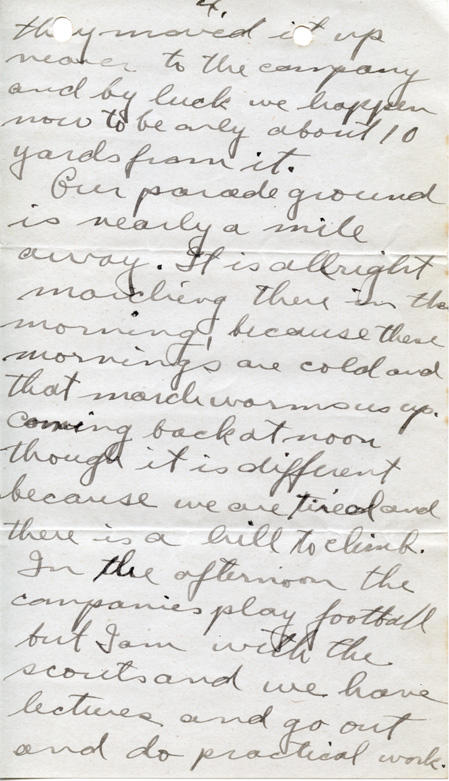 4.
they moved it up
nearer to the company
and by luck we happen
now to be only about 10
yards from it.
Our parade ground
is nearly a mile
away. It is allright
marching there in the
morning, because these
mornings are cold and
that march warms us up.
Coming back at noon
though it is different
because we are tired and
there is a hill to climb.
In the afternoon the
companies play football
but I am with the
scouts and we have
lectures and go out
and do practical work.